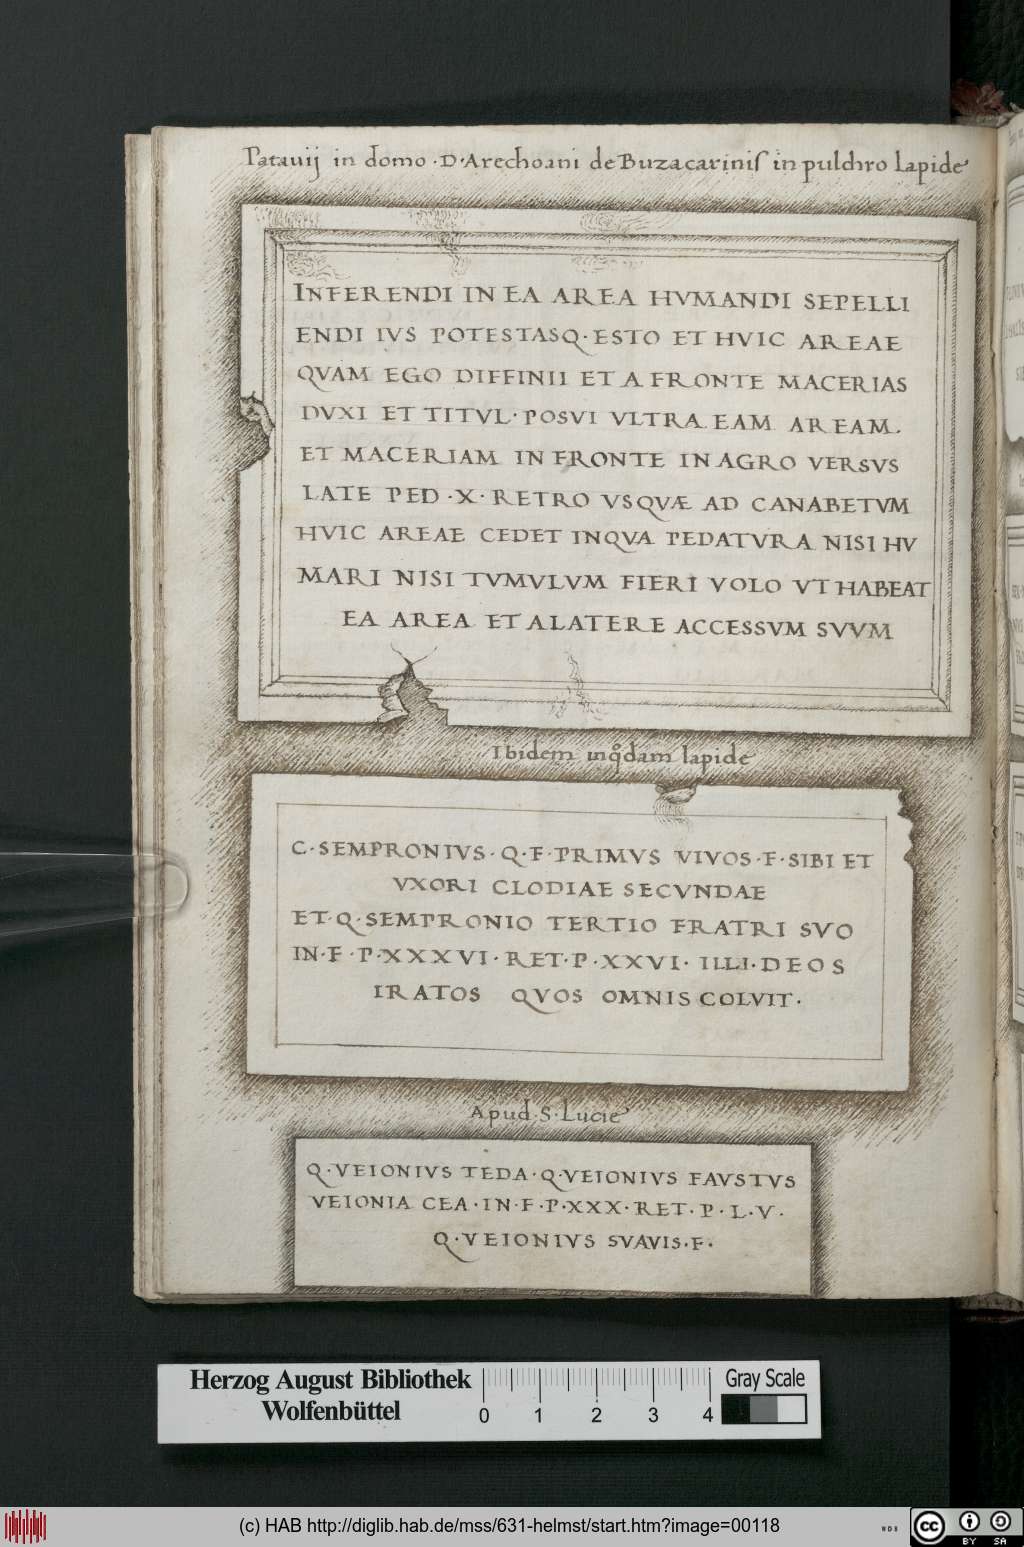 Patauij in domo ·D·Arechoani de Buzacarinis in pulchro lapide
INFERENDI IN EA AREA HVMANDI SEPELLI
ENDI IVS POTESTASQ·ESTO ET HVIC AREAE
QVAM EGO DIFFINII ET A FRONTE MACERIAS
DVXI ET TITVL·POSVI VLTRA EAM AREAM.
ET MACERIAM IN FRONTE IN AGRO VERSVS
LATE PED·X·RETRO VSQVÆ AD CANABETVM
HVIC AREAE CEDET INQVA PEDATVRA NISI HV
MARI NISI TVMVLVM FIERI VOLO VT HABEAT
EA AREA ET ALATERE ACCESSVM SVVM
Ibidem in qdam lapide
C·SEMPRONIVS·Q·F·PRIMVS VIVOS·F·SIBI ET
VXORI CLODIAE SECVNDAE
ET·Q·SEMPRONIO TERTIO FRATRI SVO
IN·F·P·XXXVI·RET·P·XXVI· ILLI·DEOS
IRATOS QVOS OMNIS COLVIT·
Apud·S·Lucie
Q·VEIONIVS TEDA·Q·VEIONIVS FAVSTVS
VEIONIA CEA·IN·F·P·XXX·RET·P·L·V·
Q·VEIONIVS SVAVIS·F·
Herzog August Bibliothek
Wolfenbüttel
0 1 2 3 4
Gray Scale
(c) HAB http://diglib.hab.de/mss/631-helmst/start.htm?image=00118
WDB
cc
BY SA